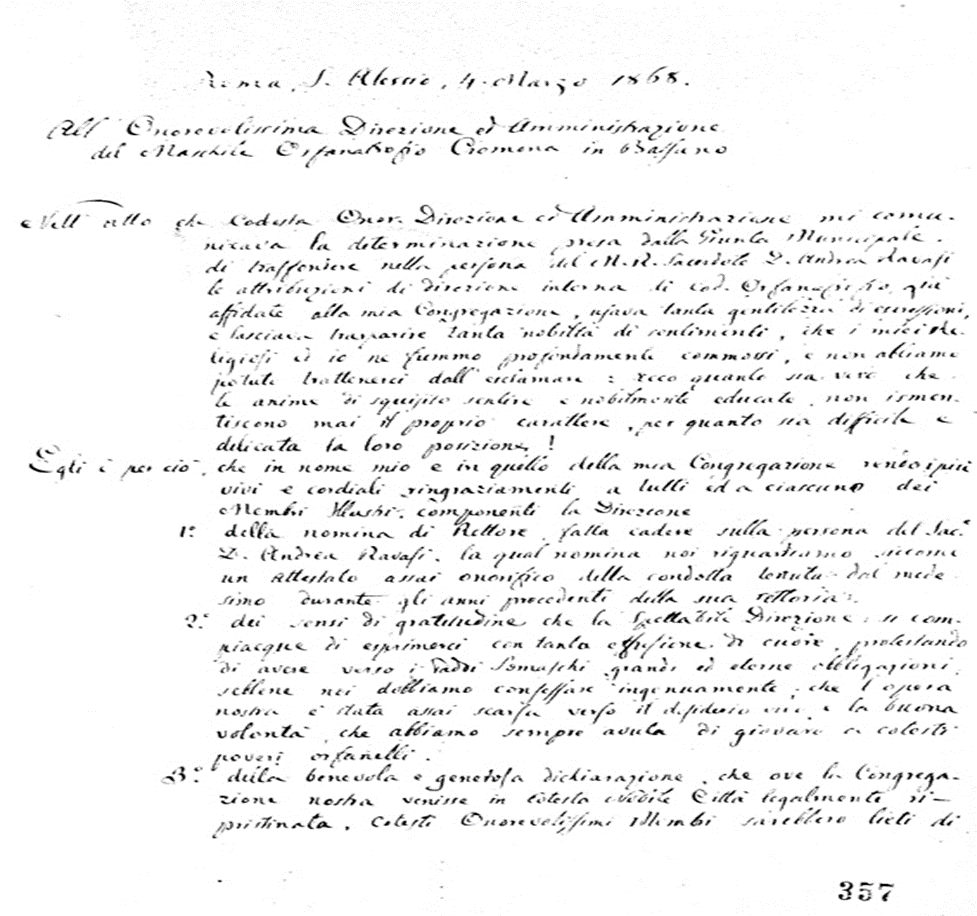 Roma, S. Alessio, 4. Marzo 1868.
All' Onorevolissima Direzione ed Amministrazione
del Maschile Orfanatrofio Cremona in Bassano
Nell' atto che Codesta Onor. Direzione ed Amministrazione mi comu-
nicava la determinazione presa dalla Giunta Municipale.
di trasfondere nella persona del M. R. Sacerdote D. Andrea Ravasi
le attribuzioni di direzione interna di cod. Orfanotrofio, già
affidate alla mia Congregazione, usava tanta gentilezza di espressioni,
e lasciava trasparire tanta nobiltà di sentimenti, che i miei Re-
ligiosi ed io ne fummo profondamente commossi, e non abbiamo
potuto trattenerci dall' esclamare: Ecco quanto sia vero che
le anime di squisito sentire e nobilmente educate, non ismen-
tiscono mai il proprio carattere, per quanto sia difficile e
delicata la loro posizione!
Egli è per ciò, che in nome mio e in quello della mia Congregazione rendo i più
vivi e cordiali ringraziamenti a tutti ed a ciascuno dei
Membri Illustri. componenti la Direzione
1.° della nomina di Rettore, fatta cadere sulla persona del Sac.e
D. Andrea Ravasi. la qual nomina noi riguardiamo siccome
un attestato assai onorifico della condotta tenuta dal mede-
simo durante gli anni precedenti della sua rettoria.
2.° dei sensi di gratitudine che la Spettabile Direzione si com-
piacque di esprimerci con tanta effusione di cuore, protestando
di avere verso i Padri Somaschi grandi ed eterne obbligazioni,
sebbene noi dobbiamo confessare ingenuamente, che l' opera
nostra è stata assai scarsa verso il desiderio vivo e la buona
volontà, che abbiamo sempre avuta di giovare a cotesti
poveri orfanelli.
3.° della benevola e generosa dichiarazione, che ove la Congrega-
zione nostra venisse in cotesta Nobile Città legalmente ri-
pristinata, cotesti Onorevolissimi Membri sarebbero lieti di
357